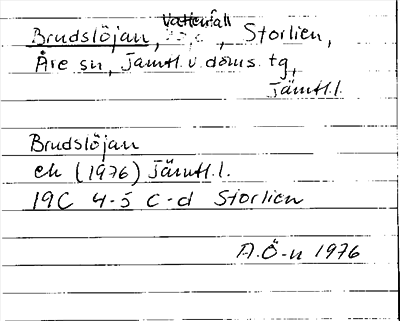 Vattenfall
Brudslöjan, , Storlien,
Åre sn, Jämtl. v. doms. tg,
Jämtl. l.
Brudslöjan
ek (1976) Jämtl. l.
19C 4-5 c-d Storlien
A.Ö-n 1976